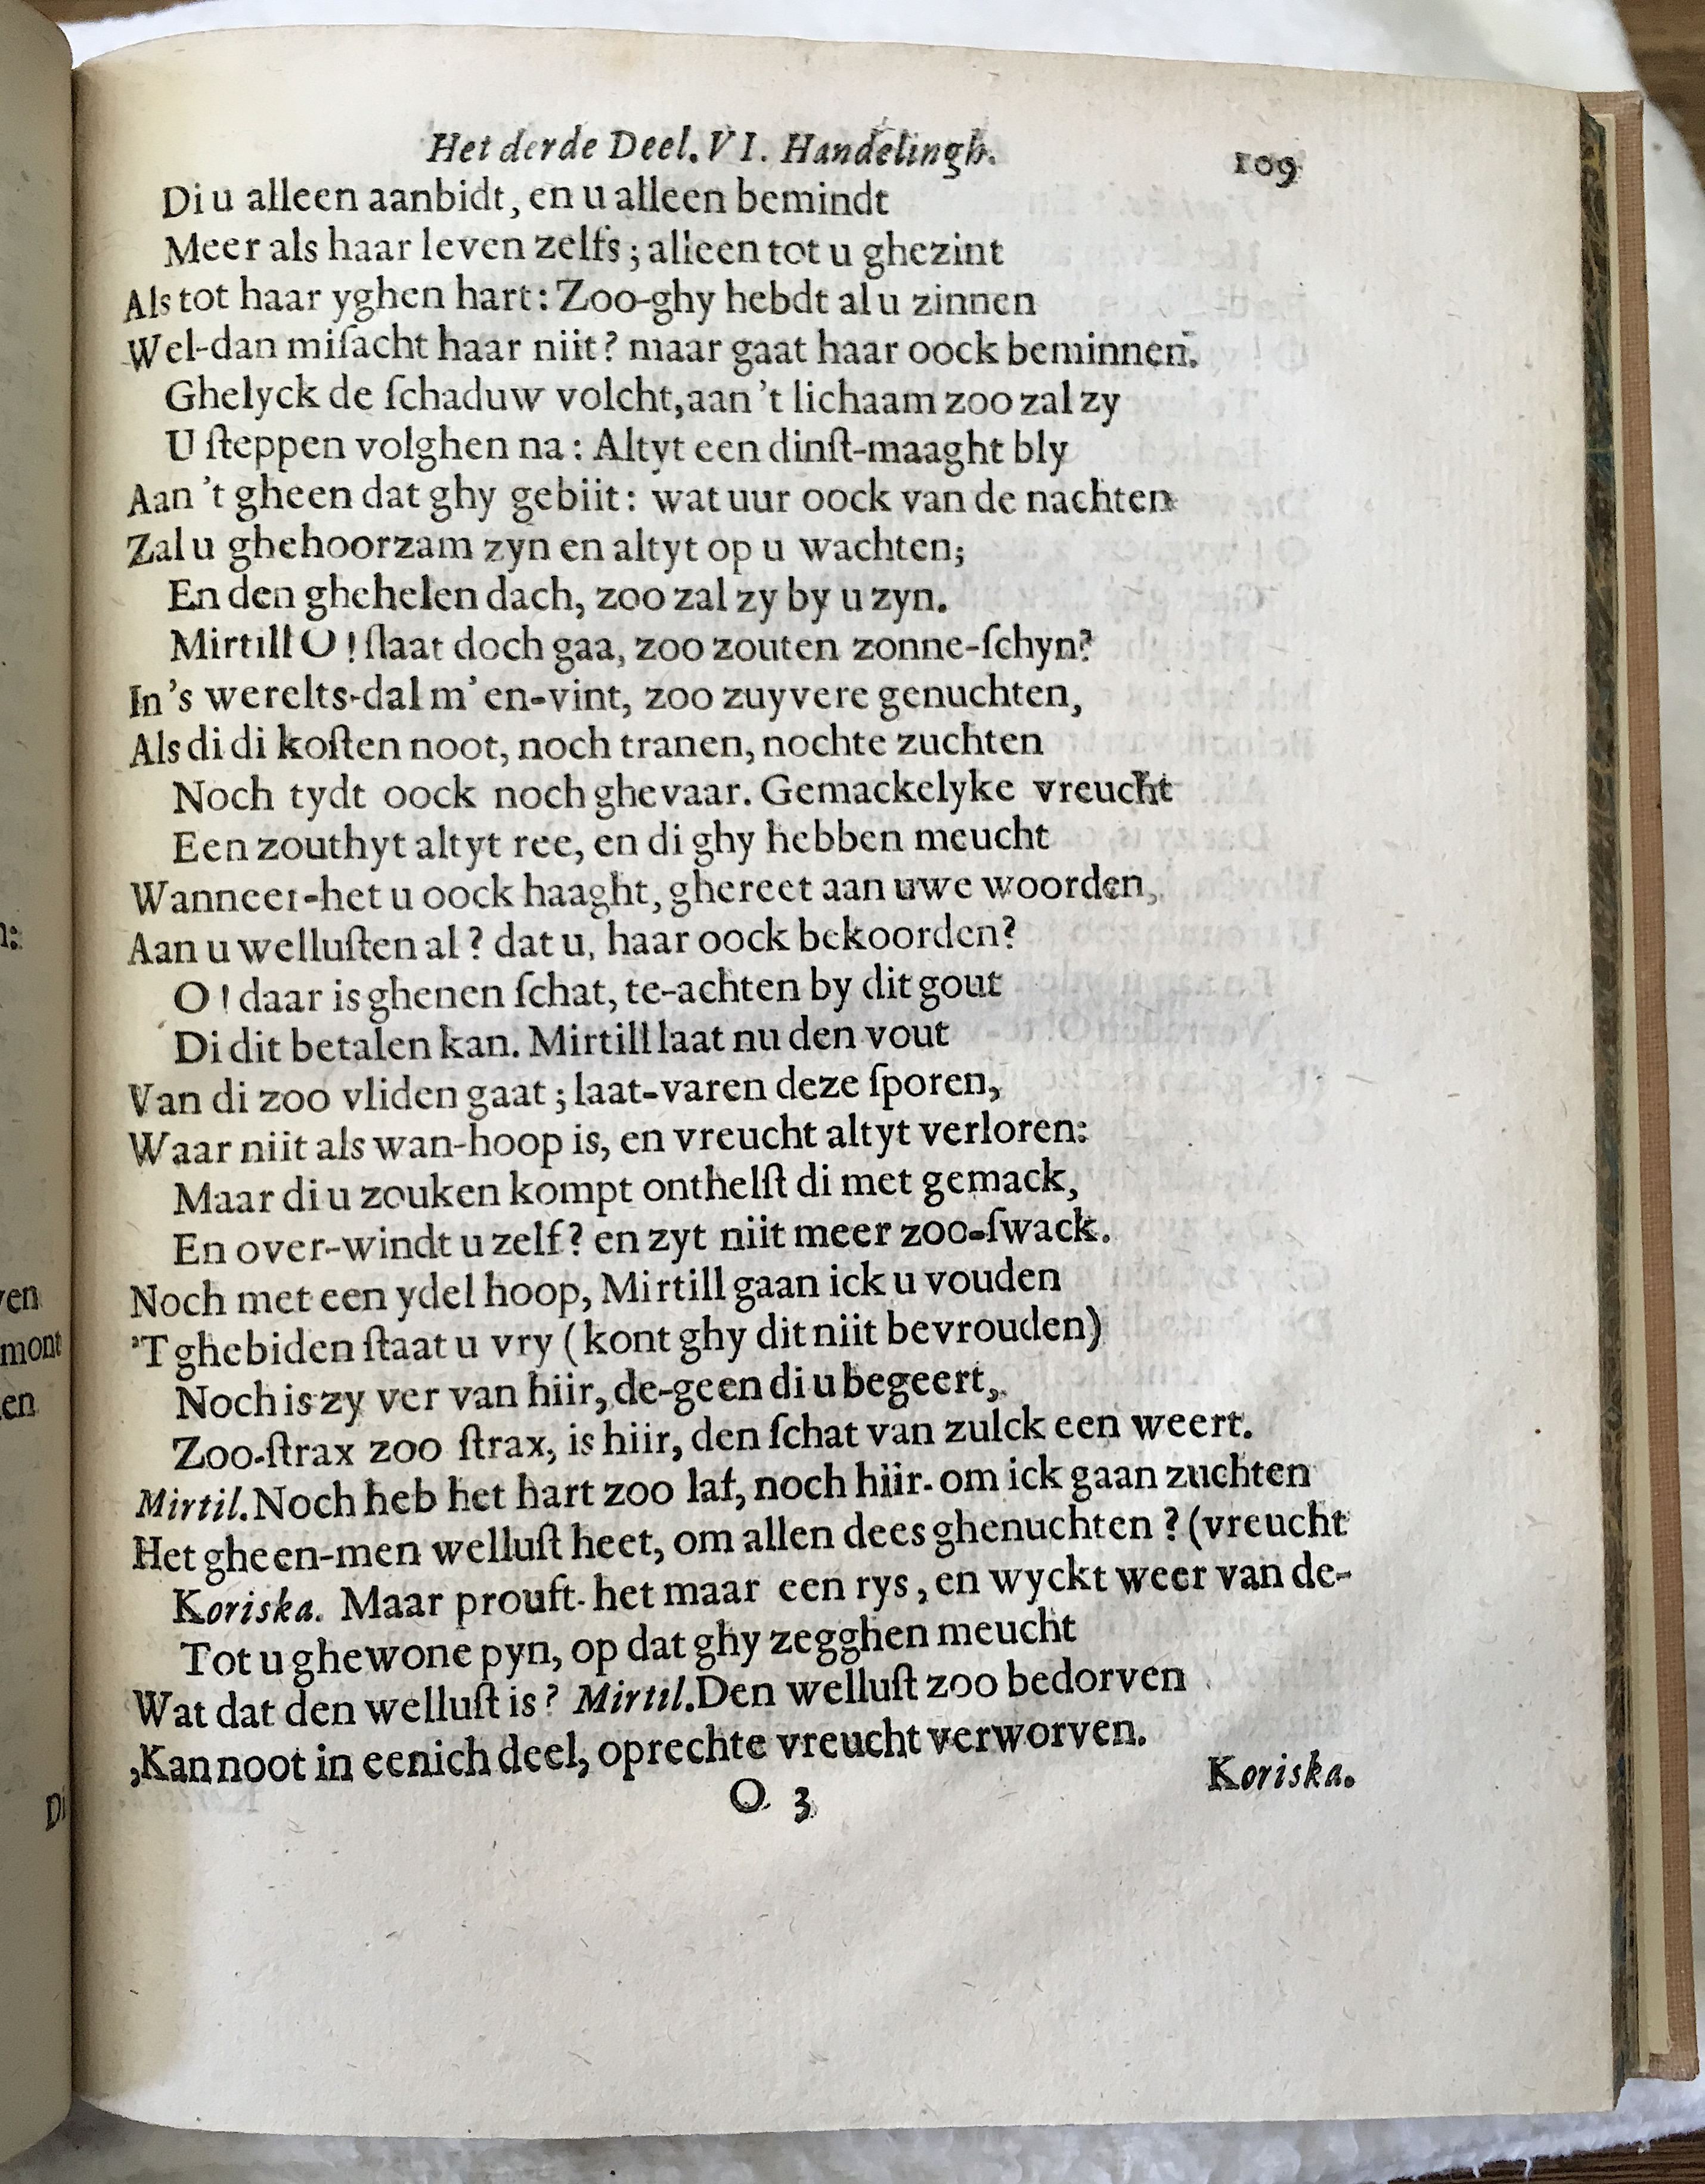 Het derde Deel. VI. Handelingh. 109
Di u alleen aanbidt, en u alleen bemindt
Meer als haar leven zelfs; alleen tot u ghezint
Als tot haar yghen hart: Zoo-ghy hebdt al u zinnen
Wel-dan miſacht haar niit? maar gaat haar oock beminnen.
Ghelyck de ſchaduw volcht, aan 't lichaam zoo zal zy
U ſteppen volghen na: Altyt een dinſt-maaght bly
Aan 't gheen dat ghy gebiit: wat uur oock van de nachten
Zal u ghehoorzam zyn en altyt op u wachten;
En den ghehelen dach, zoo zal zy by u zyn.
Mirtill O! ſlaat doch gaa, zoo zouten zonne-ſchyn?
In 's werelts-dal m' en-vint, zoo zuyvere genuchten,
Als di di koſten noot, noch tranen, nochte zuchten
Noch tydt oock noch ghevaar. Gemackelyke vreucht
Een zouthyt altyt ree, en di ghy hebben meucht
Wanneer-het u oock haaght, ghereet aan uwe woorden,
Aan u welluſten al? dat u, haar oock bekoorden?
O! daar is ghenen ſchat, te-achten by dit gout
Di dit betalen kan. Mirtill laat nu den vout
Van di zoo vliden gaat; laat-varen deze ſporen,
Waar niit als wan-hoop is, en vreucht altyt verloren:
Maar di u zouken kompt onthelſt di met gemack,
En over-windt u zelf? en zyt niit meer zoo-ſwack.
Noch met een ydel hoop, Mirtill gaan ick u vouden
'T ghebiden ſtaat u vry (kont ghy dit niit bevrouden)
Noch is zy ver van hiir, de-geen di u begeert,
Zoo-ſtrax zoo ſtrax, is hiir, den ſchat van zulck een weert.
Mirtil. Noch heb het hart zoo laf, noch hiir-om ick gaan zuchten
Het gheen-men welluſt heet, om allen dees ghenuchten? (vreucht
Koriska. Maar prouft-het maar een rys, en wyckt weer van de-
Tot u ghewone pyn, op dat ghy zegghen meucht
Wat dat den welluſt is? Mirtil. Den welluſt zoo bedorven
,Kan noot in eenich deel, oprechte vreucht verworven.
O 3 Koriska.
n:
ven
mont
en
Di